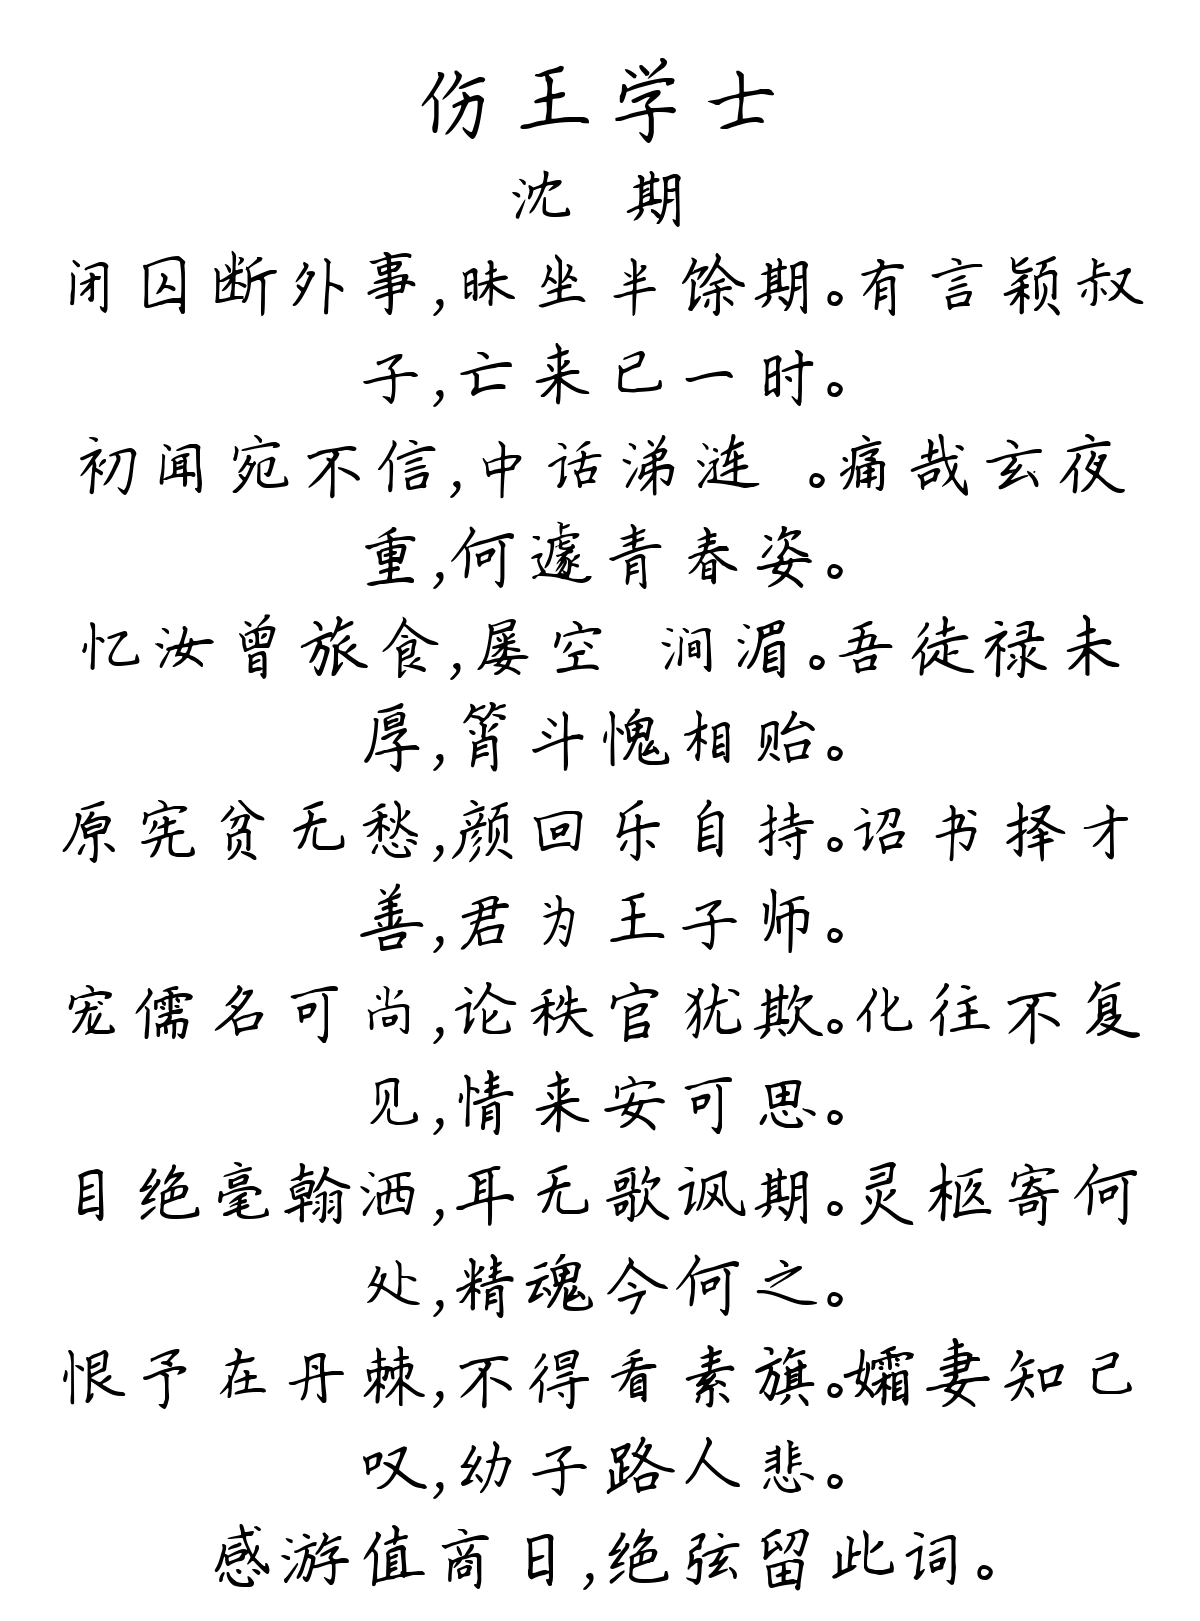 伤王学士
沈 期
闭囚断外事,昧坐半馀期。有言颖叔
子,亡来已一时。
初闻宛不信,中话涕涟 。痛哉玄夜
重,何遽青春姿。
忆汝曾旅食,屡空 涧湄。吾徒禄未
厚,筲斗愧相贻。
原宪贫无愁,颜回乐自持。诏书择才
善,君为王子师。
宠儒名可尚,论秩官犹欺。化往不复
见,情来安可思。
目绝毫翰洒,耳无歌讽期。灵柩寄何
处,精魂今何之。
恨予在丹棘,不得看素旗。孀妻知己
叹,幼子路人悲。
感游值商日,绝弦留此词。